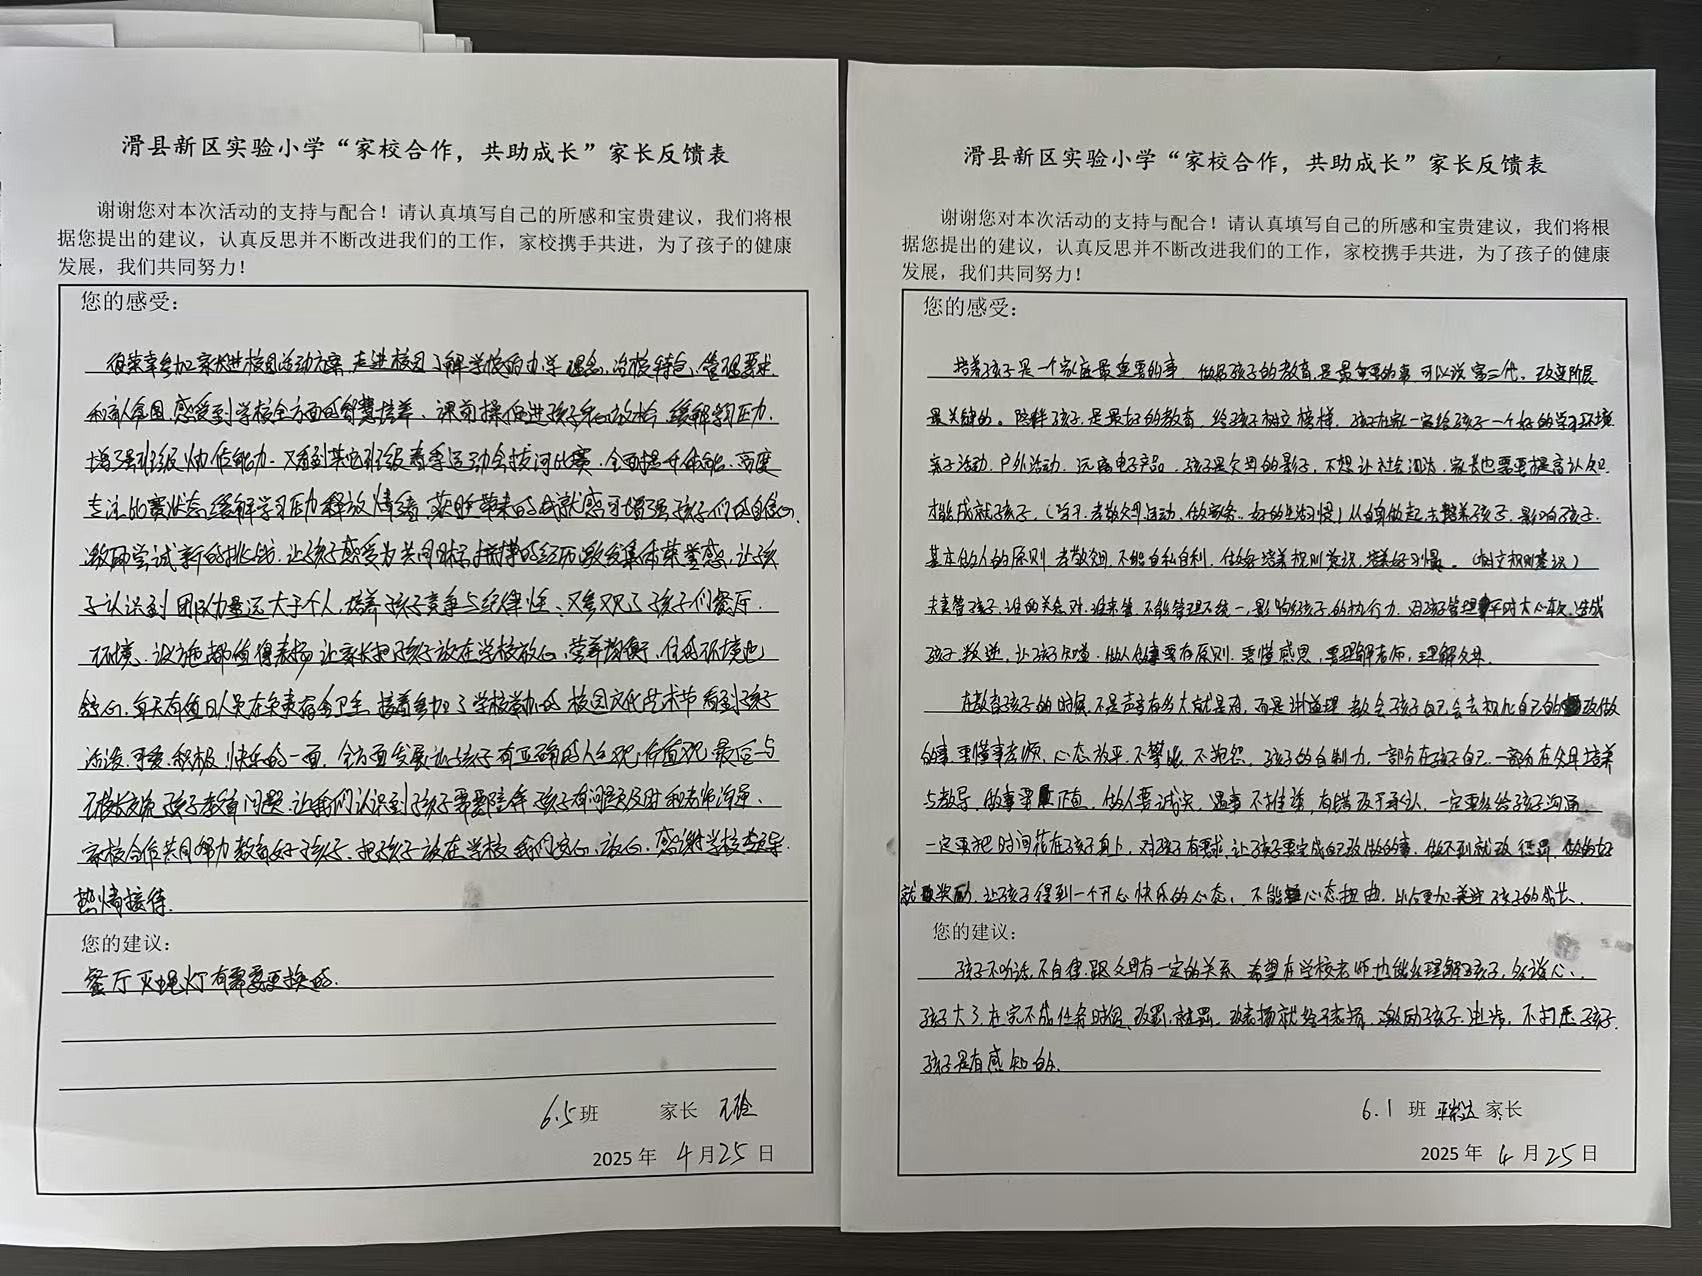 滑县新区实验小学“家校合作，共助成长”家长反馈表
谢谢您对本次活动的支持与配合！请认真填写自己的所感和宝贵建议，我们将根
据您提出的建议，认真反思并不断改进我们的工作，家校携手共进，为了孩子的健康
发展，我们共同努力！
您的感受：
很荣幸参加家长进校园活动方案，走进校园了解学校的办学理念，治校特色，管理要求
和育人氛围，感受到学校全方面的智慧培养、课前操促进孩子身心放松，缓解学习压力，
增强班级协作能力，又看到其它班级春季运动会拔河比赛，全面提升体能，高度
专注比赛状态缓解学习压力释放情绪，获胜带来的成就感可增强孩子们的自信心，
激励尝试新的挑战，让孩子感受为共同目标拼搏的经历激发集体荣誉感，让孩
子认识到团队力量远大于个人，培养孩子竞争与纪律性、又参观了孩子们餐厅，
环境，设施都值得表扬让家长把孩子放在学校放心，营养均衡，住的环境也
舒心，每天有值日人员在负责宿舍卫生，接着参加了学校举办的校园文化艺术节看到孩子
活泼，可爱，积极，快乐的一面，全方面发展让孩子有正确的人生观，价值观，最后与
石校长交流孩子教育问题，让我们认识到孩子需要陪伴，孩子有问题及时和老师沟通，
家校合作共同努力教育好孩子，把孩子放在学校我们安心，放心，感谢学校领导
热情接待。
您的建议：
餐厅灭蝇灯有需要更换的。
6.5班 家长
2025年 4月25日
滑县新区实验小学“家校合作，共助成长”家长反馈表
谢谢您对本次活动的支持与配合！请认真填写自己的所感和宝贵建议，我们将根
据您提出的建议，认真反思并不断改进我们的工作，家校携手共进，为了孩子的健康
发展，我们共同努力！
您的感受：
培养孩子是一个家庭最重要的事，做好孩子的教育，是最重要的事 可以说富三代，改变阶层
最关键的。陪伴孩子，是最好的教育，给孩子树立榜样，孩子在家一定给孩子一个好的学习环境
亲子活动，户外活动，远离电子产品，孩子是父母的影子，不想让社会淘汰，家长也需要提高认知
才能成就孩子，（学习，孝敬父母，运动，做家务，好的生活习惯）从自身做起去培养孩子，影响孩子.
基本做人的原则 孝敬父母，不能自私自利，做好培养规则意识，培养好习惯。（树立规则意识）
夫妻管孩子，谁的关会对，谁来管，不能管理不统一，影响给孩子的执行力，因孩子管理平时大心本欠，造成
孩子叛逆，让孩子知道，做人做事要有原则，要懂感恩，要理解老师，理解父母.
在教育孩子的时候，不是声音有多大就是对，而是讲道理 教会孩子自己会去执行自己的该做
的事，要懂事孝顺，心态放平，不攀比，不抱怨，孩子的自制力，一部分在孩子自己，一部分在父母培养
与教导，做事要正直，做人要诚实，遇事不推诿，有错敢于承认，一定要多给孩子沟通
一定要把时间花在孩子身上，对孩子有要求，让孩子要完成自己该做的事，做不到就该惩罚，做的好
就奖励，让孩子得到一个开心快乐的心态，不能心态扭曲，以后更加关注孩子的成长.
您的建议：
孩子不听话，不自律，跟父母有一定的关系，希望在学校老师也能多理解孩子，多谈心，
孩子大了，在完不成任务时候，该罚，就罚，该表扬就给予表扬，激励孩子，进步，不打压孩子.
孩子是有感知的.
6.1 班 家长
2025年 4 月25日